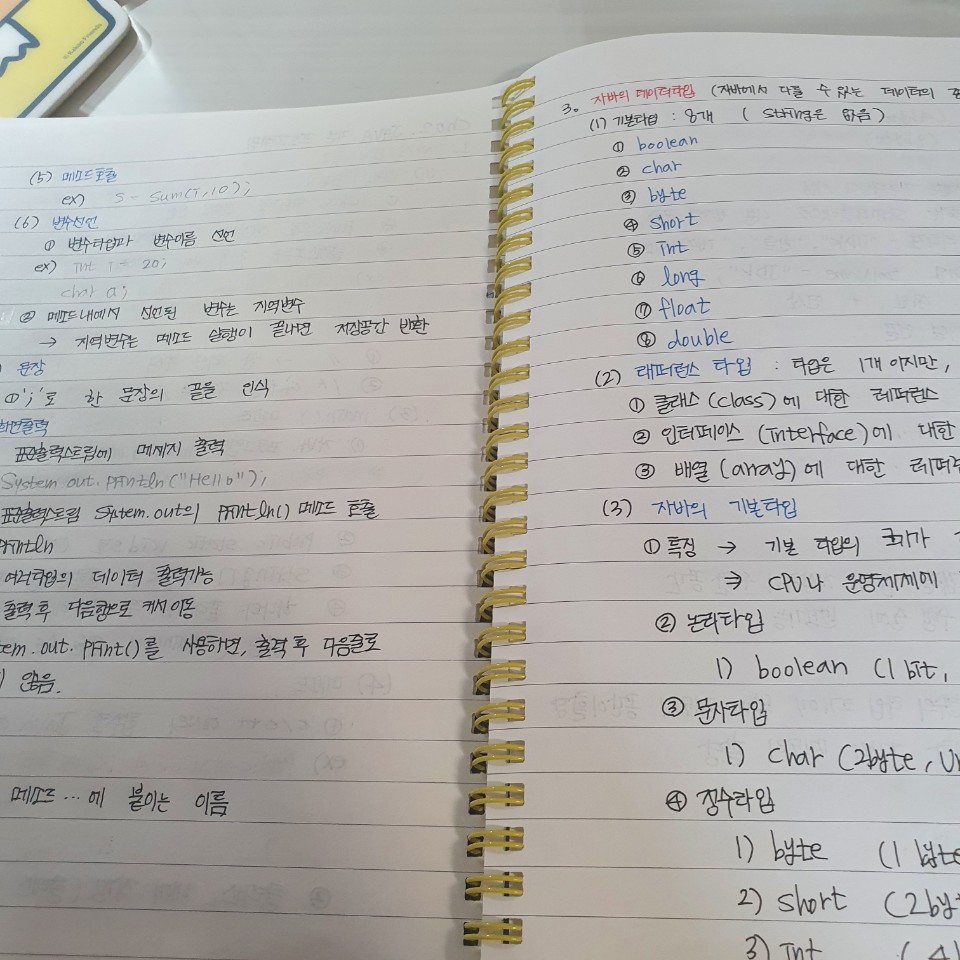 (5) 메소드 호출
ex) s = sum(i,10);
(6) 변수선언
① 변수타입과 변수이름 선언
ex) int i = 20;
char a;
② 메소드내에서 선언된 변수는 지역변수
→ 지역변수는 메소드 실행이 끝나면 저장공간 반환
) 문장
① ';'로 한 문장의 끝을 인식
화면출력
표준출력스트림에 메세지 출력
System.out.println("Hello");
표준출력스트림 System.out의 println() 메소드 호출
println
여러타입의 데이터 출력가능
출력 후 다음행으로 커서 이동
tem.out.print()를 사용하면, 출력 후 다음줄로
않음.
메소드 … 에 붙이는 이름
3. 자바의 데이터타입 (자바에서 다룰 수 있는 데이터의
(1) 기본타입 : 8개 ( string은 없음)
① boolean
② char
③ byte
④ short
⑤ int
⑥ long
⑦ float
⑧ double
(2) 래퍼런스 타입 : 타입은 1개 이지만,
① 클래스(class)에 대한 레퍼런스
② 인터페이스(interface)에 대한
③ 배열(array)에 대한 레퍼런
(3) 자바의 기본타입
① 특징 → 기본 타입의 크기가
⇒ CPU나 운영체제에
② 논리타입
1) boolean (1 bit,
③ 문자타입
1) char (2byte, Un
④ 정수타입
1) byte (1 byte
2) short (2by
3) int (4b